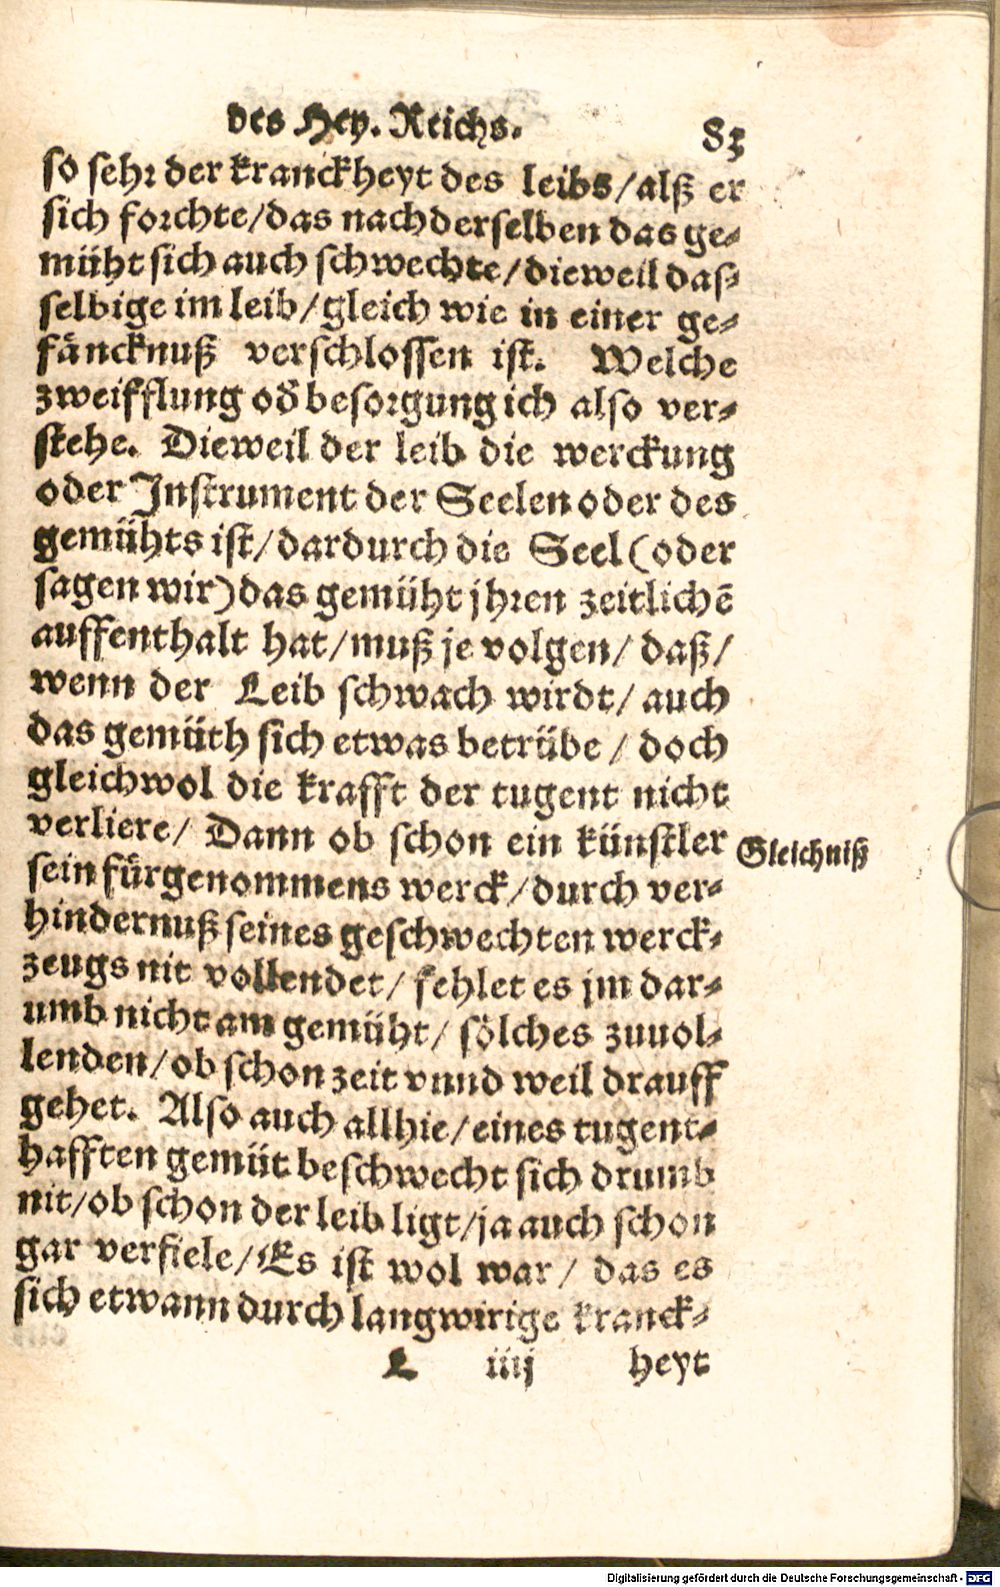 des Hey. Reichs. 83
so sehr der kranckheyt des leibs/ alß er
sich forchte/ das nach derselben das ge-
müht sich auch schwechte/ dieweil das-
selbige im leib/ gleich wie in einer ge-
fäncknuß verschlossen ist. Welche
zweifflung od̃ besorgung ich also ver-
stehe. Dieweil der leib die werckung
oder Instrument der Seelen oder des
gemühts ist/ dardurch die Seel (oder
sagen wir) das gemüht jhren zeitlichē
auffenthalt hat/ muß je volgen/ daß/
wenn der Leib schwach wirdt/ auch
das gemüth sich etwas betrübe/ doch
gleichwol die krafft der tugent nicht
verliere/ Dann ob schon ein künstler
Gleichniß
sein fürgenommens werck/ durch ver-
hindernuß seines geschwechten werck-
zeugs nit vollendet/ fehlet es jm dar-
umb nicht am gemüht/ sölches zuuol-
lenden/ ob schon zeit vnnd weil drauff
gehet. Also auch allhie/ eines tugent-
hafften gemüt beschwecht sich drumb
nit/ ob schon der leib ligt/ ja auch schon
gar verfiele/ Es ist wol war/ das es
sich etwann durch langwirige kranck-
L iiij heyt
Digitalisierung gefördert durch die Deutsche Forschungsgemeinschaft - DFG